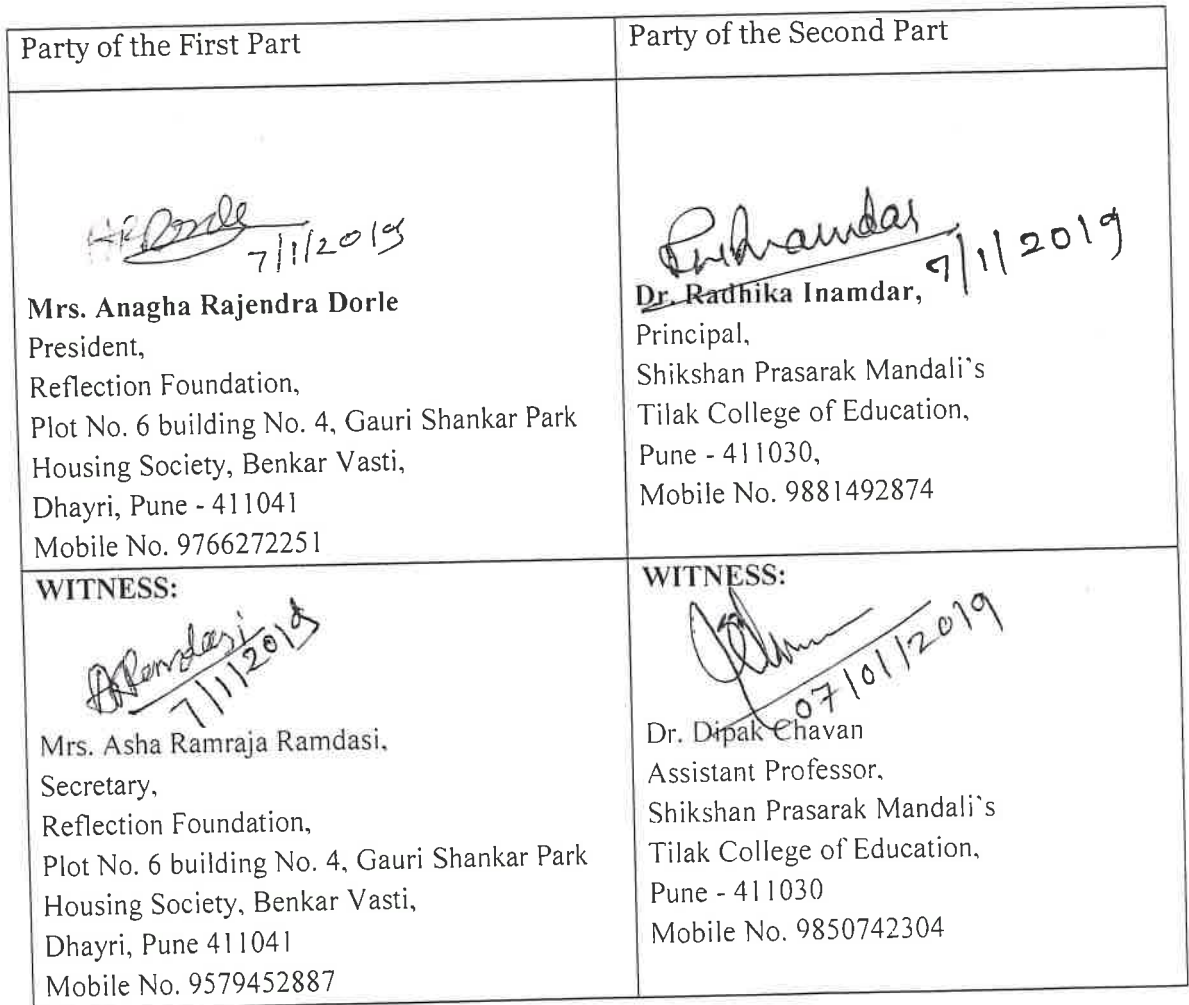 Party of the First Part
Party of the Second Part
7/1/2019
Mrs. Anagha Rajendra Dorle
President,
Reflection Foundation,
Plot No. 6 building No. 4, Gauri Shankar Park
Housing Society, Benkar Vasti,
Dhayri, Pune - 411041
Mobile No. 9766272251
7/1/2019
Dr. Radhika Inamdar,
Principal,
Shikshan Prasarak Mandali`s
Tilak College of Education,
Pune - 411030,
Mobile No. 9881492874
WITNESS:
ARamdasi
7/1/2019
Mrs. Asha Ramraja Ramdasi,
Secretary,
Reflection Foundation,
Plot No. 6 building No. 4, Gauri Shankar Park
Housing Society, Benkar Vasti,
Dhayri, Pune 411041
Mobile No. 9579452887
WITNESS:
07/01/2019
Dr. Dipak Chavan
Assistant Professor,
Shikshan Prasarak Mandali`s
Tilak College of Education,
Pune - 411030
Mobile No. 9850742304